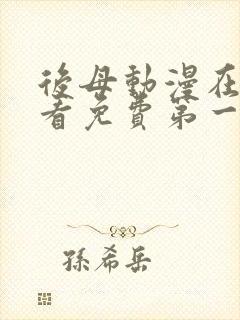 後母動漫在
看免費第一
孫希岳